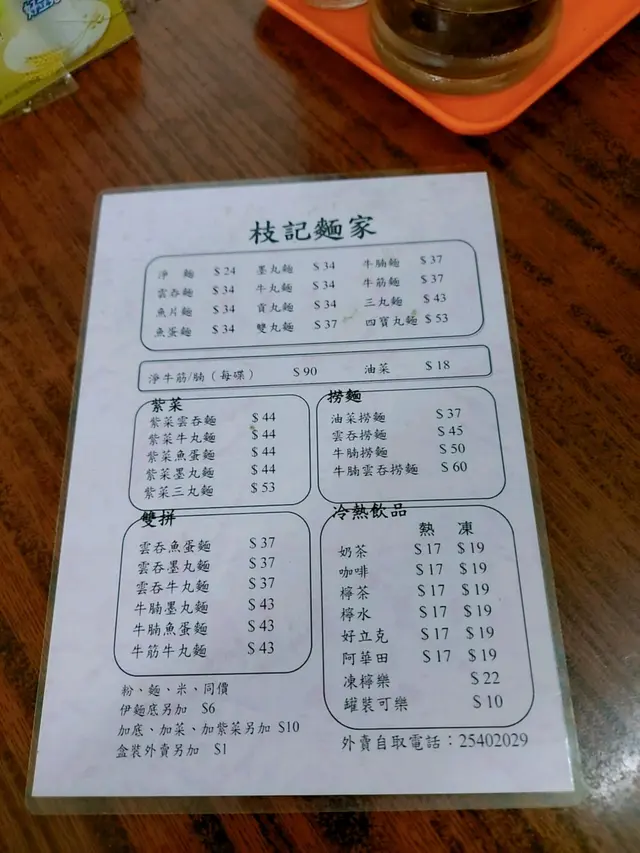 好立克
枝記麵家
淨麵 $24 墨丸麵 $34 牛腩麵 $37
雲吞麵 $34 牛丸麵 $34 牛筋麵 $37
魚片麵 $34 貢丸麵 $34 三丸麵 $43
魚蛋麵 $34 雙丸麵 $37 四寶丸麵 $53
淨牛筋/腩（每碟） $90 油菜 $18
紫菜
紫菜雲吞麵 $44
紫菜牛丸麵 $44
紫菜魚蛋麵 $44
紫菜墨丸麵 $44
紫菜三丸麵 $53
撈麵
油菜撈麵 $37
雲吞撈麵 $45
牛腩撈麵 $50
牛腩雲吞撈麵 $60
雙拼
雲吞魚蛋麵 $37
雲吞墨丸麵 $37
雲吞牛丸麵 $37
牛腩墨丸麵 $43
牛腩魚蛋麵 $43
牛筋牛丸麵 $43
冷熱飲品
熱 凍
奶茶 $17 $19
咖啡 $17 $19
檸茶 $17 $19
檸水 $17 $19
好立克 $17 $19
阿華田 $17 $19
凍檸樂 $22
罐裝可樂 $10
粉、麵、米、同價
伊麵底另加 $6
加底、加菜、加紫菜另加 $10
盒裝外賣另加 $1
外賣自取電話：25402029